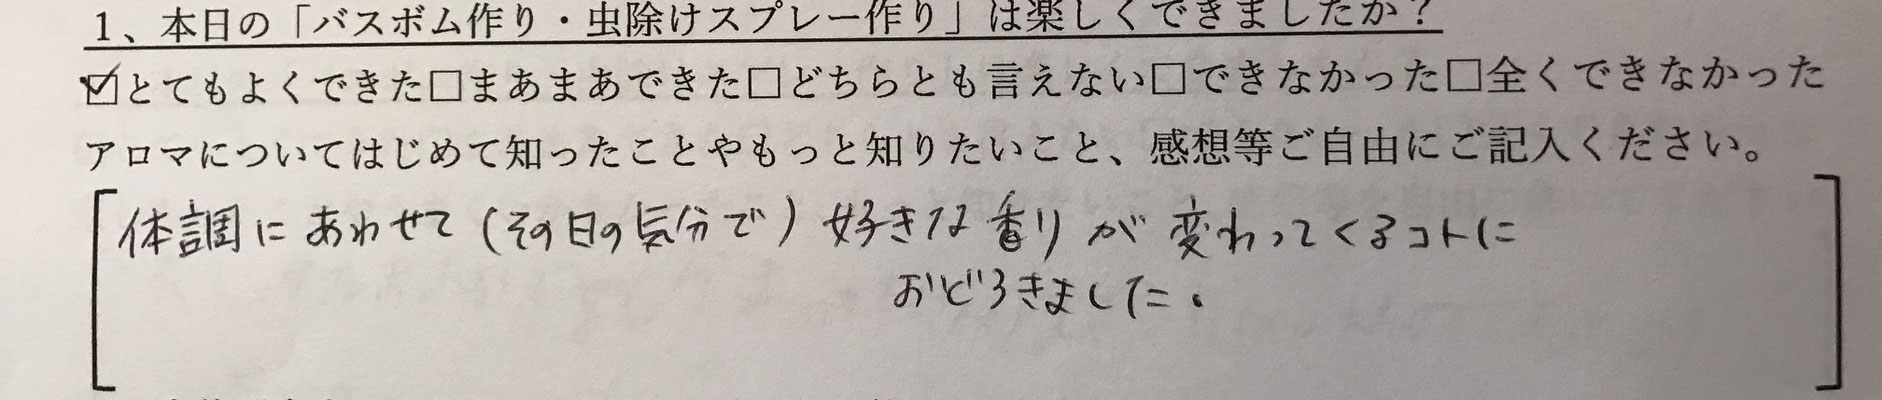 1、本日の「バスボム作り・虫除けスプレー作り」は楽しくできましたか？
☑とてもよくできた□まあまあできた□どちらとも言えない□できなかった□全くできなかった
アロマについてはじめて知ったことやもっと知りたいこと、感想等ご自由にご記入ください。
体調にあわせて(その日の気分で)好きな香りが変わってくるコトに
おどろきました。